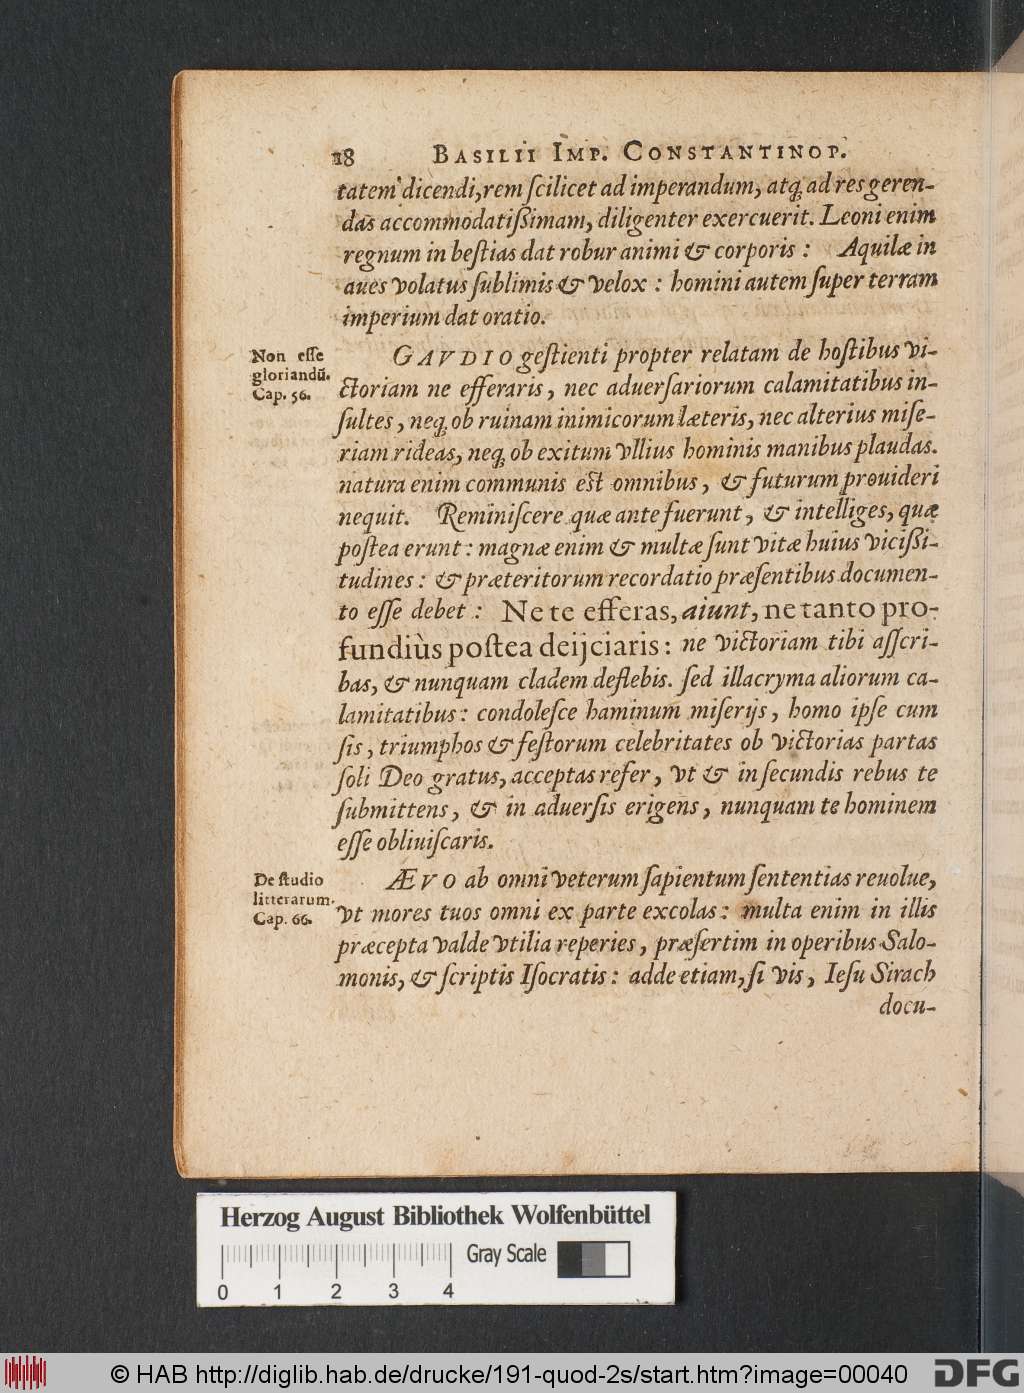 18 BASILII IMP. CONSTANTINOP.
tatem dicendi, rem ſcilicet ad imperandum, atq; ad res geren-
das accommodatiſſimam, diligenter exercuerit. Leoni enim
regnum in beſtias dat robur animi & corporis : Aquilæ in
aues volatus ſublimis & velox : homini autem ſuper terram
imperium dat oratio.
Non eſſe
gloriandū.
Cap. 56.
GAVDIO geſtienti propter relatam de hoſtibus vi-
ctoriam ne efferaris, nec aduerſariorum calamitatibus in-
ſultes, neq; ob ruinam inimicorum læteris, nec alterius miſe-
riam rideas, neq; ob exitum vllius hominis manibus plaudas.
natura enim communis est omnibus, & futurum prouideri
nequit. Reminiſcere quæ ante fuerunt, & intelliges, quæ
poſtea erunt : magnæ enim & multæ ſunt vitæ huius viciſſi-
tudines : & præteritorum recordatio præſentibus documen-
to eſſe debet : Ne te efferas, aiunt, ne tanto pro-
fundiùs poſtea deijciaris : ne victoriam tibi aſſcri-
bas, & nunquam cladem deflebis. ſed illacryma aliorum ca-
lamitatibus : condoleſce haminum miſerijs, homo ipſe cum
ſis, triumphos & feſtorum celebritates ob victorias partas
ſoli Deo gratus, acceptas refer, vt & in ſecundis rebus te
ſubmittens, & in aduerſis erigens, nunquam te hominem
eſſe obliuiſcaris.
De ſtudio
litterarum.
Cap. 66.
ÆVO ab omni veterum ſapientum ſententias reuolue,
vt mores tuos omni ex parte excolas : multa enim in illis
præcepta valde vtilia reperies, præſertim in operibus Salo-
monis, & ſcriptis Iſocratis : adde etiam, ſi vis, Ieſu Sirach
docu-
Herzog August Bibliothek Wolfenbüttel
Gray Scale
0 1 2 3 4
© HAB http://diglib.hab.de/drucke/191-quod-2s/start.htm?image=00040
DFG